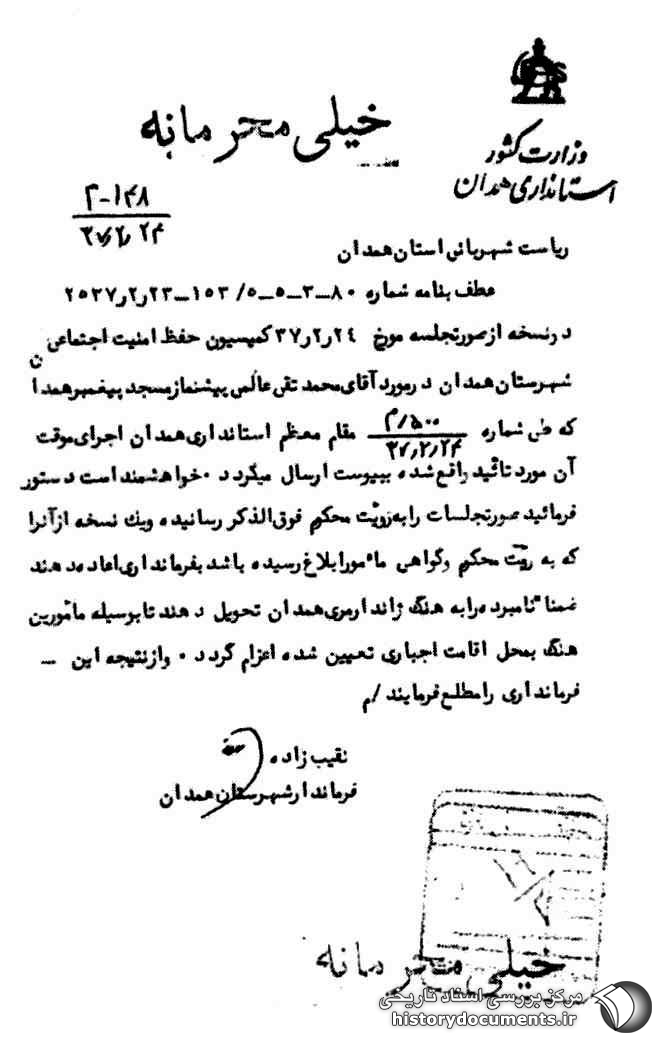 خیلی محرمانه
وزارت کشور
استانداری همدان
۲-۱۴۸
۳۷٫۲٫۲۴
ریاست شهربانی استان همدان
عطف بنامه شماره ۸۰-۳-۵-۵/ ۱۵۳-۲۳٫۲٫۲۵۳۷
دو نسخه از صورتجلسه مورخ ۳۷٫۲٫۲۴ کمیسیون حفظ امنیت اجتماعی
شهرستان همدان در مورد آقای محمد تقی عالمی پیشنماز مسجد پیغمبر همدان
که طی شماره ۵۰۰/م ۳۷٫۲٫۲۴ مقام معظم استانداری همدان اجرای موقت
آن مورد تائید واقع شده بپیوست ارسال میگردد ۰ خواهشمند است دستور
فرمائید صورتجلسات را به رویت محکوم فوق‌الذکر رسانیده ویک نسخه از آنرا
که به رویت محکوم وگواهی مأمور ابلاغ رسیده باشد بفرمانداری اعاده دهند
ضمنا" نامبرده را به هنگ ژاندارمری همدان تحویل دهند تا بوسیله مأمورین
هنگ بمحل اقامت اجباری تعیین شده اعزام گردد ۰ و از نتیجه این ــ
فرمانداری را مطلع فرمایند /م
نقیب زاده
فرماندار شهرستان همدان
خیلی محرمانه
مرکز بررسی اسناد تاریخی
historydocuments.ir